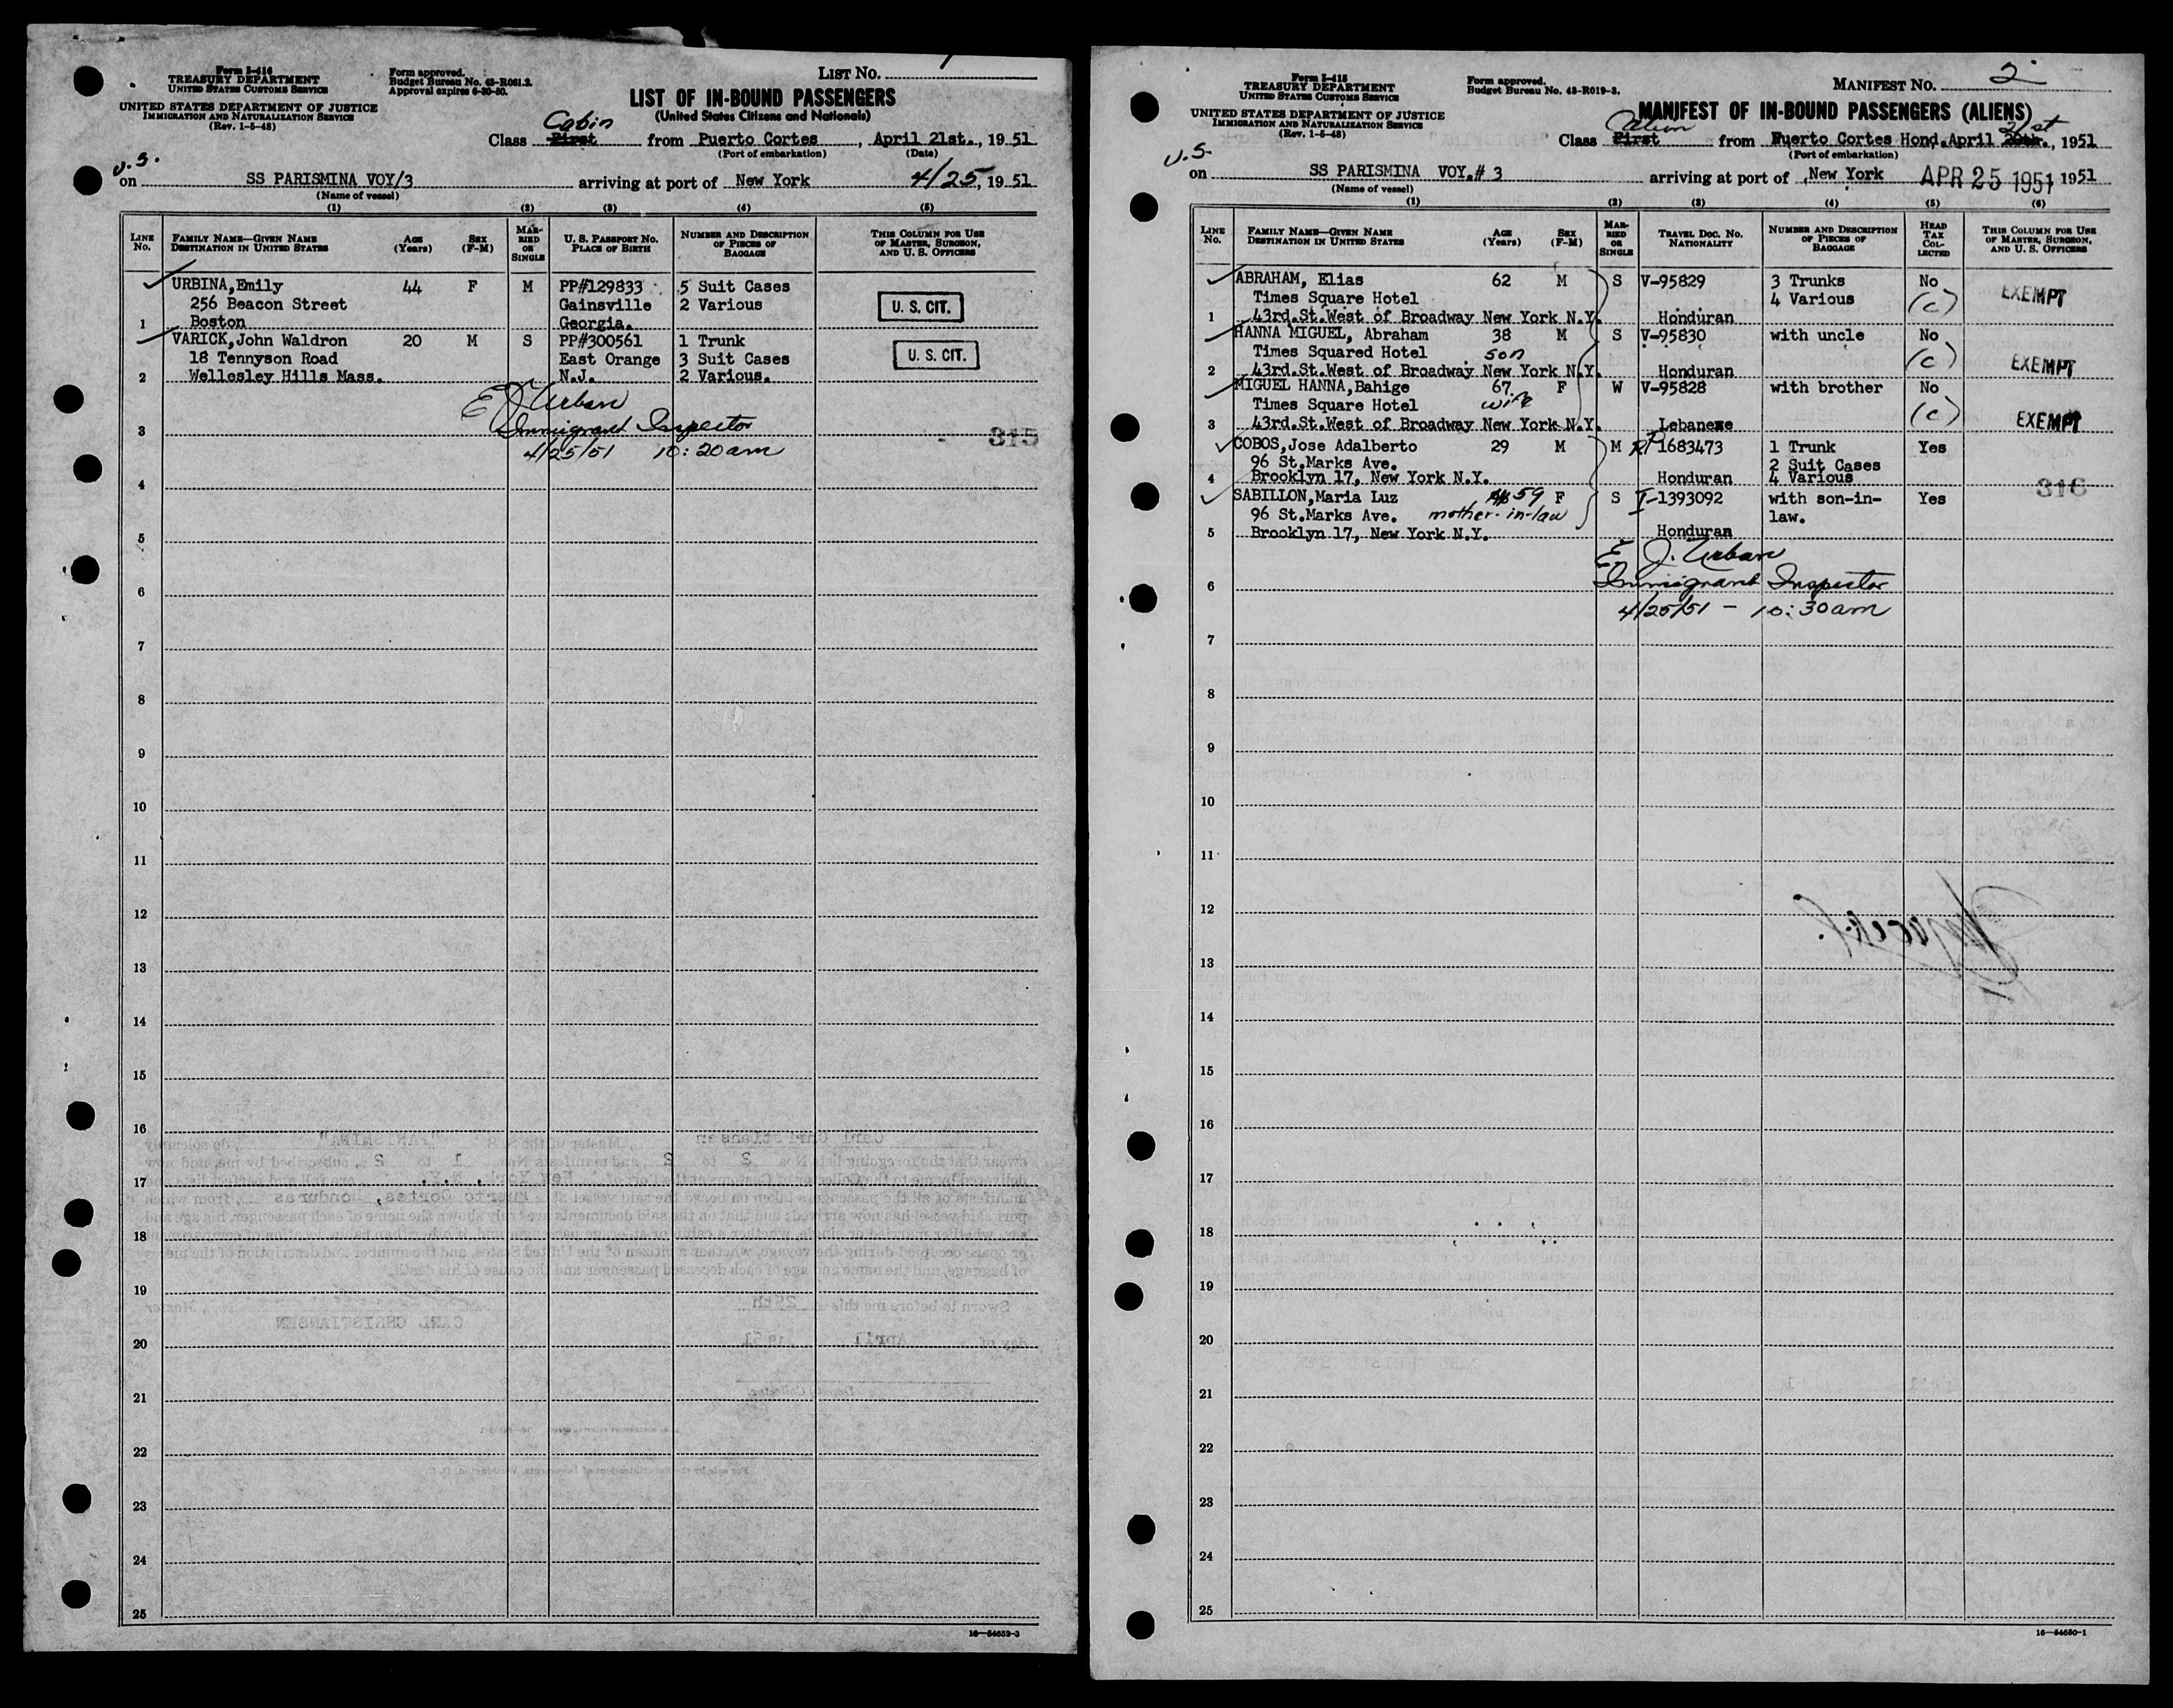 Form I-416
TREASURY DEPARTMENT
UNITED STATES CUSTOMS SERVICE
Form approved.
Budget Bureau No. 43-R061.2.
Approval expires 6-30-50.
LIST NO. 1
UNITED STATES DEPARTMENT OF JUSTICE
IMMIGRATION AND NATURALIZATION SERVICE
(Rev. 1-5-48)
LIST OF IN-BOUND PASSENGERS
(United States Citizens and Nationals)
Cabin
Class First from Puerto Cortes, April 21st., 1951
(Port of embarkation) (Date)
U.S.
on SS PARISMINA VOY/3 arriving at port of New York 4/25, 1951
(Name of vessel)
(1) (2) (3) (4) (5)
LINE No. FAMILY NAME—GIVEN NAME DESTINATION IN UNITED STATES AGE (Years) SEX (F-M) MARRIED OR SINGLE U. S. PASSPORT NO. PLACE OF BIRTH NUMBER AND DESCRIPTION OF PIECES OF BAGGAGE THIS COLUMN FOR USE OF MASTER, SURGEON, AND U. S. OFFICERS
URBINA,Emily 44 F M PP#129833 5 Suit Cases
256 Beacon Street Gainsville 2 Various U. S. CIT.
1 Boston Georgia.
VARICK,John Waldron 20 M S PP#300561 1 Trunk
18 Tennyson Road East Orange 3 Suit Cases U. S. CIT.
2 Wellesley Hills Mass. N.J. 2 Various.
E J Urban
3 Immigrant Inspector 315
4/25/51 10:20am
4
5
6
7
8
9
10
11
12
13
14
15
16
17
18
19
20
21
22
23
24
25
16—54652-3
Form I-415
TREASURY DEPARTMENT
UNITED STATES CUSTOMS SERVICE
Form approved.
Budget Bureau No. 43-R019-3.
MANIFEST NO. 2
UNITED STATES DEPARTMENT OF JUSTICE
IMMIGRATION AND NATURALIZATION SERVICE
(Rev. 1-5-48)
MANIFEST OF IN-BOUND PASSENGERS (ALIENS)
21st
Class First from Puerto Cortes Hond. April 20th., 1951
(Port of embarkation)
U.S.
on SS PARISMINA VOY.# 3 arriving at port of New York APR 25 1951 1951
(Name of vessel)
(1) (2) (3) (4) (5) (6)
LINE No. FAMILY NAME—GIVEN NAME DESTINATION IN UNITED STATES AGE (Years) SEX (F-M) MARRIED OR SINGLE TRAVEL DOC. NO. NATIONALITY NUMBER AND DESCRIPTION OF PIECES OF BAGGAGE HEAD TAX COLLECTED THIS COLUMN FOR USE OF MASTER, SURGEON, AND U. S. OFFICERS
ABRAHAM, Elias 62 M S V-95829 3 Trunks No
Times Square Hotel 4 Various (C) EXEMPT
1 43rd.St.West of Broadway New York N.Y. Honduran
HANNA MIGUEL, Abraham 38 M S V-95830 with uncle No
Times Squared Hotel son (C) EXEMPT
2 43rd.St.West of Broadway New York N.Y. Honduran
MIGUEL HANNA,Bahige 67 F W V-95828 with brother No
Times Square Hotel wife (C) EXEMPT
3 43rd.St.West of Broadway New York N.Y. Lebanese
COBOS,Jose Adalberto 29 M M RP1683473 1 Trunk Yes
96 St.Marks Ave. 2 Suit Cases
4 Brooklyn 17, New York N.Y. Honduran 4 Various 316
SABILLON,Maria Luz 59 F S I-1393092 with son-in- Yes
96 St.Marks Ave. mother-in-law law.
5 Brooklyn 17, New York N.Y. Honduran
E J. Urban
6 Immigrant Inspector
4/25/51 - 10:30am
7
8
9
10
11
12
13
14
15
16
17
18
19
20
21
22
23
24
25
16—54650-1